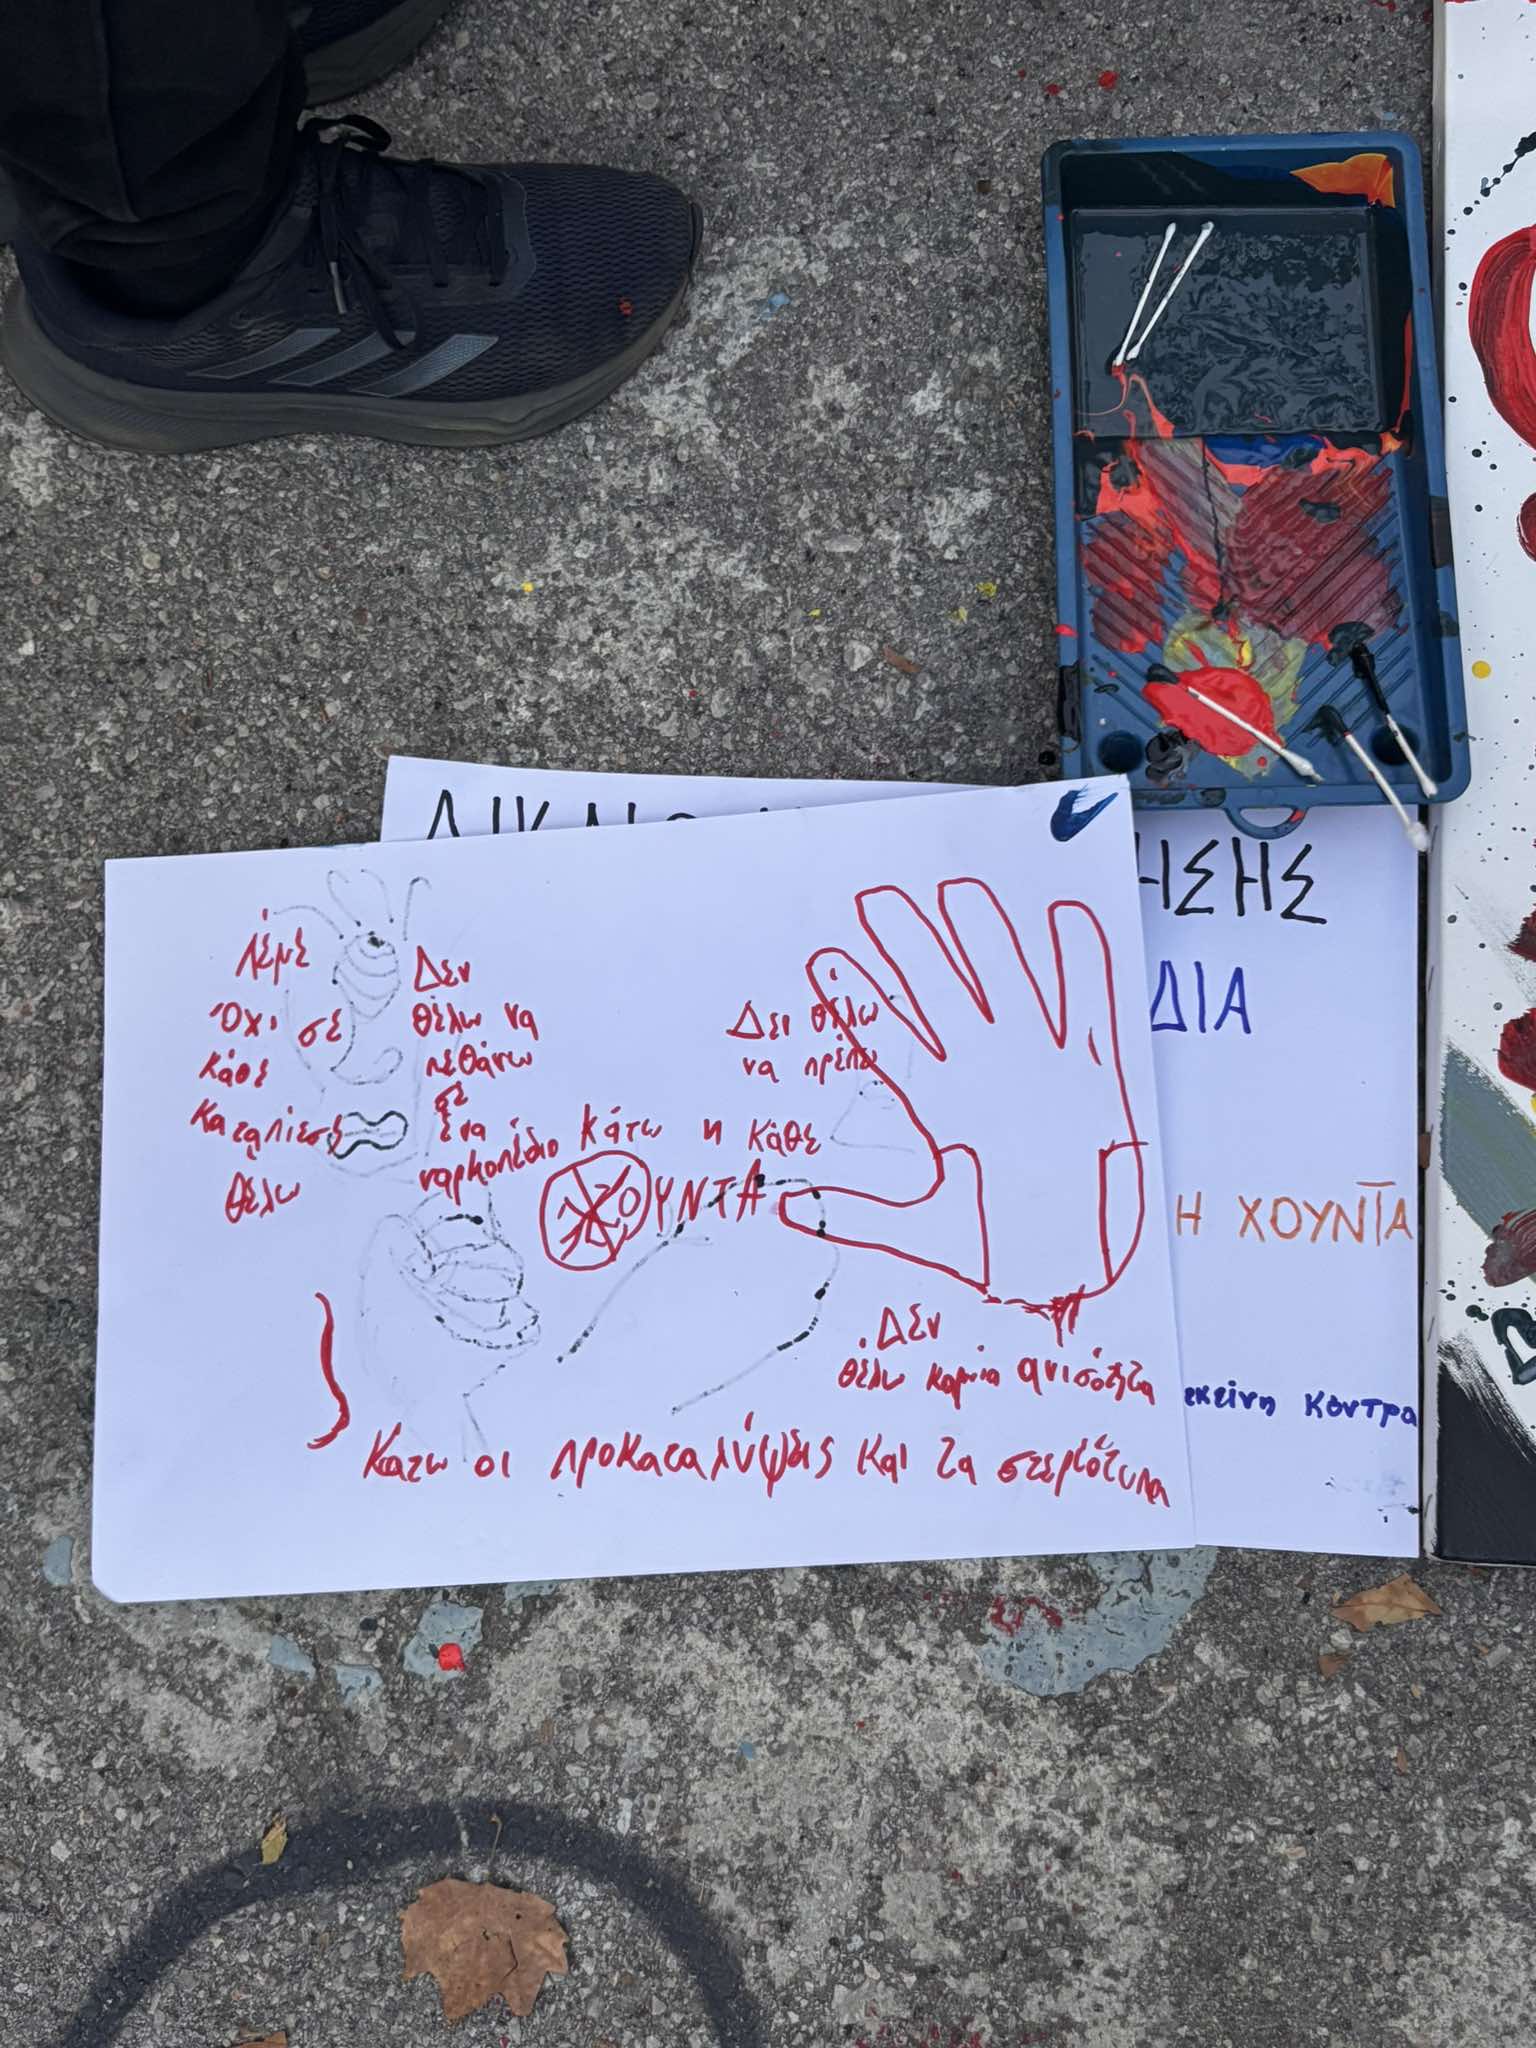 ΗΣΗΣ
ΔΙΑ
Η ΧΟΥΝΤΑ
εκείνη κόντρα
Λέμε
Όχι σε
κάθε
καταπίεση
θέλω
Δεν
θέλω να
πεθάνω
σε
ένα
ναρκοπέδιο
Δεν θέλω
να πρέπει
Κάτω η κάθε
ΧΟΥΝΤΑ
Δεν
θέλω καμία ανισότητα
Κάτω οι προκαταλύψεις και τα στεριότυπα